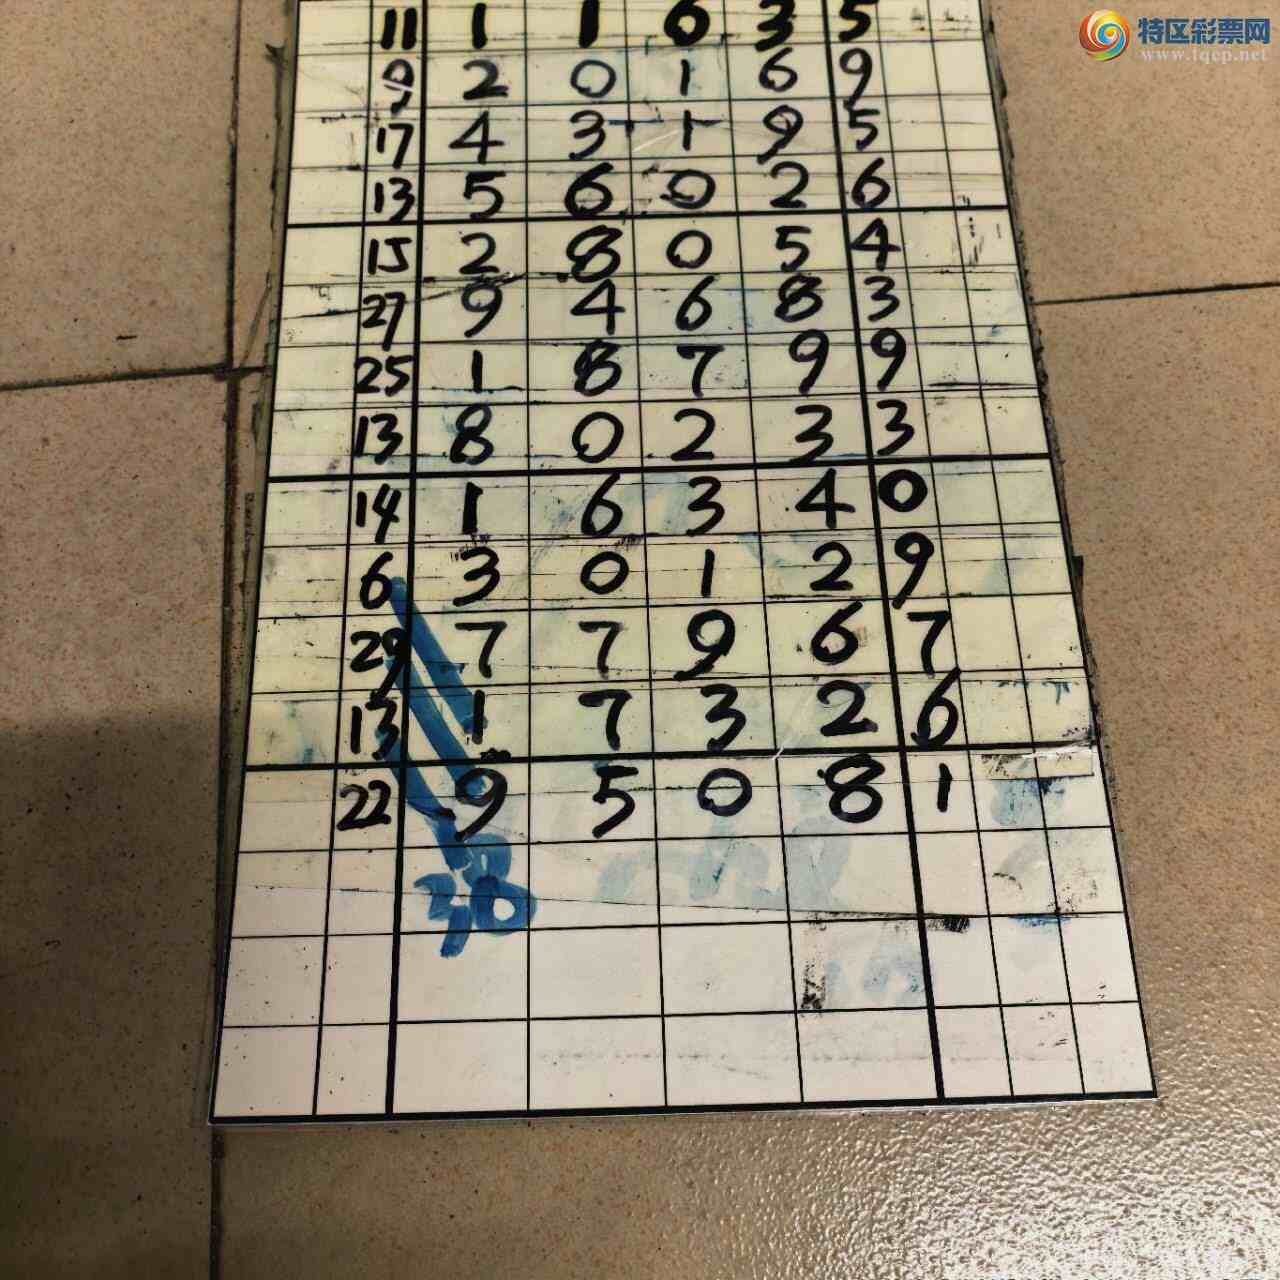 特区彩票网
www.tqcp.net
11 1 1 6 3 5
9 2 0 1 6 9
17 4 3 1 9 5
13 5 6 0 2 6
15 2 8 0 5 4
27 9 4 6 8 3
25 1 8 7 9 9
13 8 0 2 3 3
14 1 6 3 4 0
6 3 0 1 2 9
29 7 7 9 6 7
13 1 7 3 2 6
22 9 5 0 8 1